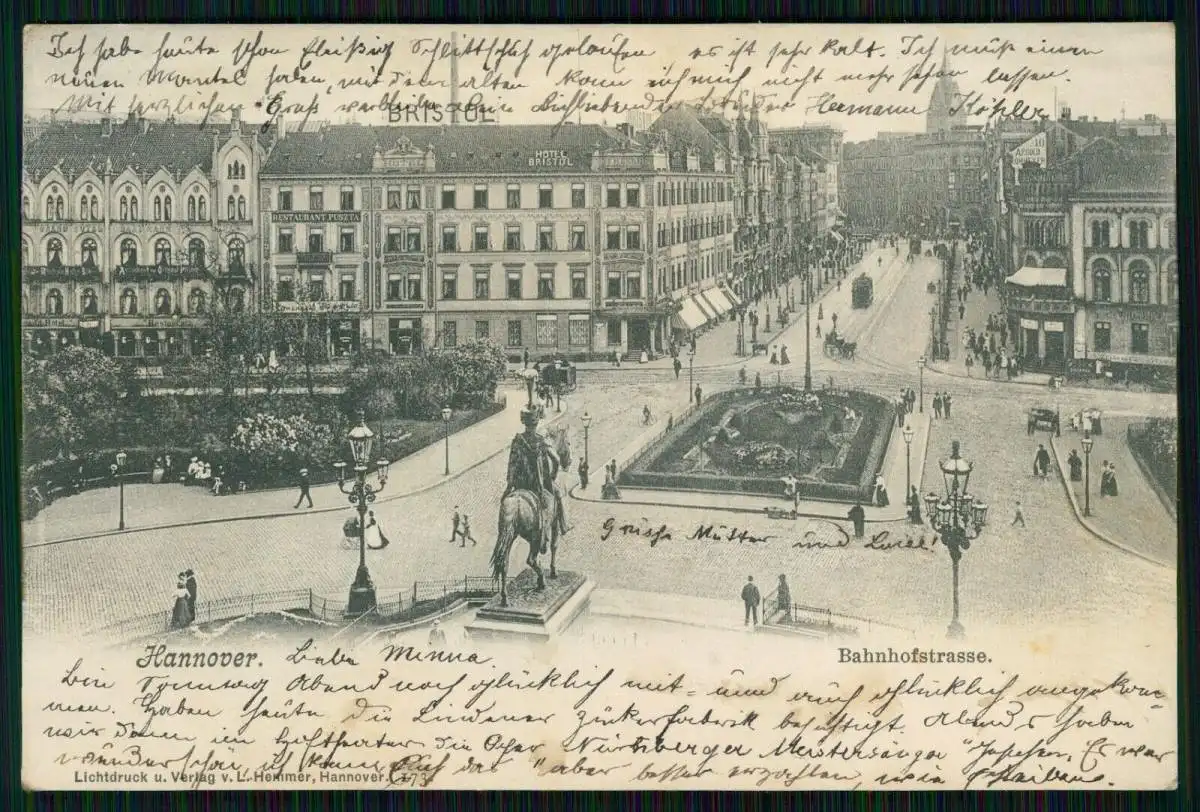 Ich habe heute schon fleißig Schlittschuh gelaufen es ist sehr kalt. Ich muß einen
neuen Mantel haben, mit dem alten kann ich mich nicht mehr sehen lassen.
Mit herzlichen Gruß verbleibe Dein Dichliebender Hermann Köhler
BRISTOL
HOTEL BRISTOL
RESTAURANT PUSZTA
Grüße Mutter und Luise!
Hannover. Liebe Minna
Bahnhofstrasse.
bin Sonntag Abend noch glücklich mit= und auch glücklich angekom=
men. Haben heute die Lindener Zuckerfabrik besichtigt. Abends haben
wir dann im Hoftheater die Oper "Nürnberger Meistersänger" gesehen, Es war
wunderschön ich kann Euch das aber besser erzählen, wie schreiben.
Lichtdruck u. Verlag v. L. Hemmer, Hannover. 173